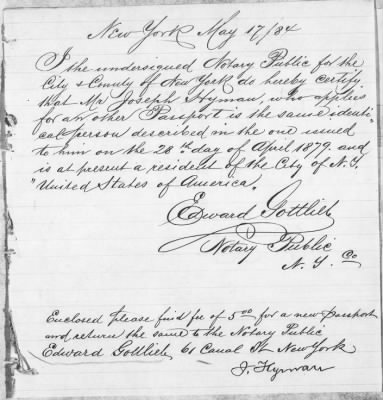 New York May 17/84
I the undersigned Notary Public for the
City & County of New York do hereby certify
that Mr Joseph Hyman, who applies
for an other Passport is the same identi-
cal person described in the one issued
to him on the 28th day of April 1879. and
is at present a resident of the City of N.Y.
"United States of America."
Edward Gottlieb
Notary Public
N. Y. Co
Enclosed please find fee of 5.00 for a new Passport
and return the same to the Notary Public
Edward Gottlieb 61 Canal St New York
J. Hyman